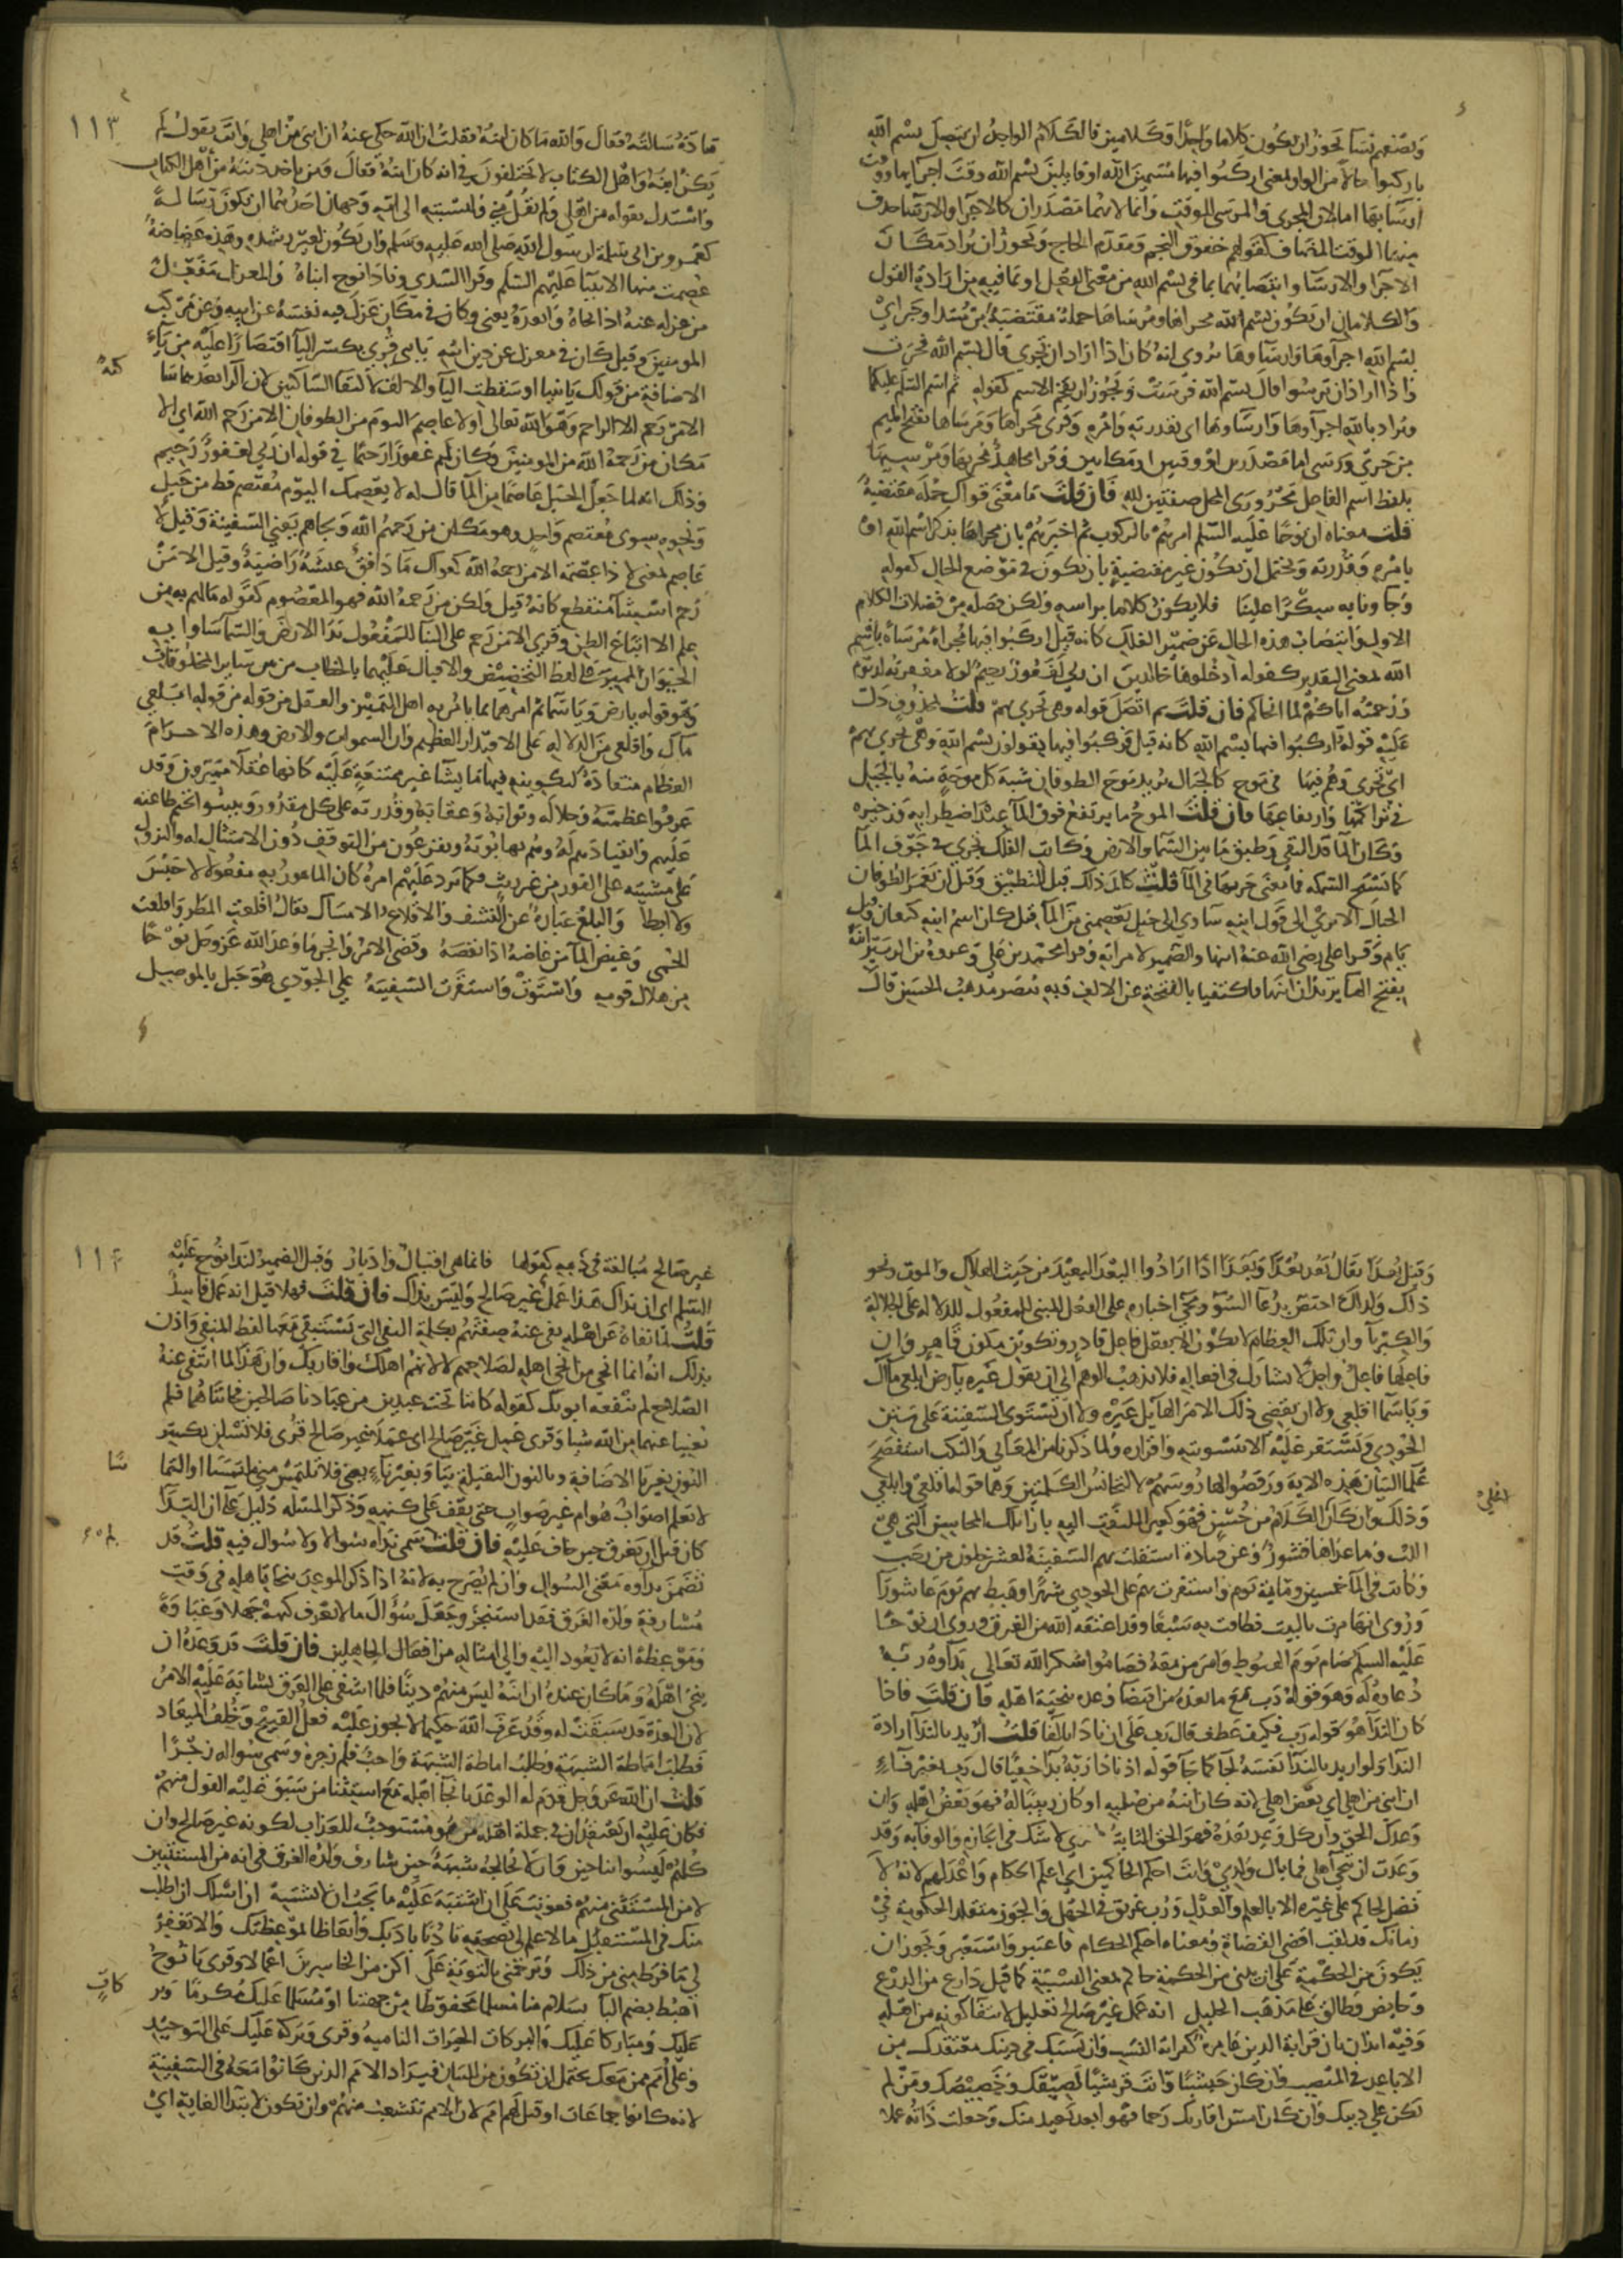 وبصنعهم نسا يجوز ان يكون كلاما واحدا وكلامين فالكلام الواحد ان يتصل بسم الله
باركبوا حالا من الواو بمعنى اركبوا فيها مسمين الله او قايلين بسم الله وقت اجرايها ووقت
ارسايها اما لان المجرى والمرسى للوقت واما لانهما مصدران كالاجرا والارسا حذف
منهما الوقت المضاف كقولهم خفوق النجم ومقدم الحاج ويجوز ان يراد مكانا
الاجرا والارسا وانتصابهما بما في بسم الله من معنى الفعل او بما فيه من ارادة القول
والكلامان ان يكون بسم الله مجراها ومرساها جملة مقتضبة من مبتدا وخبر اي
بسم الله اجراوها وارساوها يروى انه كان اذا اراد ان تجري قال بسم الله فجرت
واذا اراد ان ترسوا قال بسم الله فرست ويجوز ان يقحم الاسم كقوله ثم اسم السلم عليكما
ويراد بالله اجراوها وارساوها اي بقدرته وامره وقرى مجراها ومرساها بفتح الميم
من جرى ورسى اما مصدرين او وقتين او مكانين وقرا مجاهد مجريها ومرسيها
بلفظ اسم الفاعل مجروري المحل صفتين لله فان قلت ما معنى قولك جملة مقتضبة
قلت معناه ان نوحا عليه السلم امرهم بالركوب ثم اخبرهم بان مجراها بذكر اسم الله او
بامره وقدرته ويحتمل ان يكون غير مقتضبة بان يكون في موضع الحال كقوله
وجاونا به سكرا علينا فلا يكون كلاما براسه ولكن فضله من فضلات الكلام
الاول وانتصاب هذه الحال عن ضمير الفلك كانه قيل اركبوا فيها مجراة مرساة باسم
الله بمعنى التقدير كقوله ادخلوها خالدين ان ربي لغفور رحيم لولا مغفرته لذنوبكم
ورحمته اياكم لما انجاكم فان قلت بم اتصل قوله وهي تجري بهم قلت بمحذوف دل
عليه قوله اركبوا فيها بسم الله كانه قيل فركبوا فيها يقولون بسم الله وهي تجري بهم
اي تجري وهم فيها في موج كالجبال يريد موج الطوفان شبه كل موجة منه بالجبل
في تراكمها وارتفاعها فان قلت الموج ما يرتفع فوق الما عند اضطرابه وزخيره
وكان الما قد التقى وطبق ما بين السما والارض وكانت الفلك تجري في جوف الما
كما تسبح السمكة فما معنى جريها في الما قلت كان ذلك قبل التطبيق وقبل ان يغمر الطوفان
الجبال الا ترى الى قول ابنه ساوي الى جبل يعصمني من الما قيل كان اسم ابنه كنعان وقيل
يام وقرا علي رضي الله عنه ابنها والضمير لامراته وقرا محمد بن علي وعروة بن الزبير ابنه
بفتح الها يريدان ابنها فاكتفيا بالفتحة عن الالف وبه ينصر مذهب الحسن قال
١١٣
قتادة سالته فقال والله ما كان ابنه فقلت ان الله حكى عنه ان ابني من اهلي وانت تقول لم
يكن ابنه واهل الكتاب لا يختلفون في انه كان ابنه فقال ومن ياخذ دينه من اهل الكتاب
واستدل بقوله من اهلي ولم يقل مني ولنسبته الى امه وجهان احدهما ان يكون ربيبا له
كعمر بن ابي سلمة لرسول الله صلى الله عليه وسلم وان يكون لغير رشده وهذه غضاضة
عصمت منها الانبيا عليهم السلم وقرا السدي ونادا نوح ابناه والمعزل مفعل
من عزله عنه اذا نحاه وابعده يعني وكان في مكان عزل فيه نفسه عن ابيه وعن مركب
المومنين وقيل كان في معزل عن دين ابيه يا بني قرى بكسر اليا اقتصارا عليه من ياء
كمه
الاضافة من قولك يا بنيا او سقطت اليا والالف لالتقا الساكنين لان الرا بعدهما ساكنة
الا من رحم الا الراحم وهو الله تعالى اولا عاصم اليوم من الطوفان الا من رحم الله اي الا
مكان من رحمه الله من المومنين وكان لهم غفورا رحيما في قوله ان ربي لغفور رحيم
وذلك انه لما جعل الجبل عاصما من الما قال له لا يعصمك اليوم معتصم قط من جبل
ونحوه سوى معتصم واحد وهو مكان من رحمهم الله ونجاهم يعني السفينة وقيل لا
عاصم بمعنى لا ذا عصمة الا من رحمه الله كقولك ما دافق وعيشة راضية وقيل الا من
رحم استثنا منقطع كانه قيل ولكن من رحمه الله فهو المعصوم كقوله ما لهم به من
علم الا اتباع الظن وقرى الا من رحم على البنا للمفعول ندا الارض والسما بما ينادا به
الحيوان المميز على لفظ التخصيص والاقبال عليهما بالخطاب من بين ساير المخلوقات
وهو قوله يارض ويا سما ثم امرهما بما يامر به اهل التمييز والعقل من قوله ابلعي
ماك واقلعي من الدلالة على الاقتدار العظيم وان السموات والارض وهذه الاجرام
العظام منقادة لتكوينه فيها ما يشا غير ممتنعة عليه كانها عقلا مميزون وقد
عرفوا عظمته وجلاله وثوابه وعقابه وقدرته على كل مقدور وتبينوا تحتم طاعته
عليهم وانقيادهم له وهم يهابونه ويفزعون من التوقف دون الامتثال له والنزول
على مشيته على الفور من غير ريث فكما يرد عليهم امره كان المامور به مفعولا لا حبس
ولا ابطا والبلع عبارة عن النشف والاقلاع الامساك يقال اقلعت المطر واقلعت
الحمى وغيض الما من غاضه اذا نقصه وقضي الامر وانجز ما وعد الله عز وجل نوحا
من هلاك قومه واستوت واستقرت السفينة على الجودي هو جبل بالموصل
وقيل بعدا يقال بعد بعدا وبعدا اذا ارادوا البعد البعيد من حيث الهلاك والموت ونحو
ذلك ولذلك اختص بدعا السو ومجي اخباره على الفعل المبني للمفعول للدلالة على الجلالة
والكبريا وان تلك العظام لا يكون الا بفعل فاعل قادر وتكوين مكون قاهر وان
فاعلها فاعل واحد لا يشارك في افعاله فلا يذهب الوهم الى ان يقول غيره يارض ابلعي ماك
ويا سما اقلعي ولا ان يقضي ذلك الامر الهايل غيره ولا ان تستوي السفينة على متن
الجودي وتستقر عليه الا بتسويته واقراره ولما ذكرنا من المعاني والنكت استفصح
علما البيان هذه الاية ورقصوا لها روسهم لا لتجانس الكلمتين وهما قوله ابلعي واقلعي
وذلك وان كان الكلام من حسن فهو كغير الملتفت اليه بازا تلك المحاسن التي هي
اللب وما عداها قشور وعن قتادة استقلت بهم السفينة لعشر خلون من رجب
وكانت في الما خمسين وماية يوم واستقرت بهم على الجودي شهرا وهبط بهم يوم عاشورا
وروي انها مرت بالبيت فطافت به سبعا وقد اعتقه الله من الغرق وروي ان نوحا
عليه السلم صام يوم الهبوط وامر من معه فصاموا شكرا لله تعالى نداوه ربه
دعاوه له وهو قوله رب مع ما بعده من اقتضا وعده بنجية اهله فان قلت فاذا
كان الندا هو قوله رب فكيف عطف قال رب على نادا بالفا قلت اريد بالندا ارادة
الندا ولو اريد بالندا نفسه لجا كما جا قوله اذ نادا ربه ندا خفيا قال رب بغير فاء
ان ابني من اهلي اي بعض اهلي لانه كان ابنه من صلبه او كان ربيبا له فهو بعض اهله وان
وعدك الحق وان كل وعد تعده فهو الحق الثابت الذي لا شك في انجازه والوفا به وقد
وعدت ان تنجي اهلي فما بال ولدي وانت احكم الحاكمين اي اعلم الحكام واعدلهم لانه لا
فضل لحاكم على غيره الا بالعلم والعدل ورب غريق في الجهل والجور من متقلدي الحكومة في
زمانك قد لقب اقضى القضاة ومعناه احكم الحكام فاعتبر واستعبر ويجوز ان
يكون من الحكمة على ان يبنى من الحكمة حاكم بمعنى النسبة كما قيل دارع من الدرع
وحايض وطالق على مذهب الخليل انه عمل غير صالح تعليل لانتفا كونه من اهله
وفيه ايذان بان قرابة الدين غامرة لقرابة النسب وان نسيبك في دينك ومعتقدك من
الاباعد في المنصب وان كان حبشيا وانت قرشيا لصيقك وخصيصك ومن لم
يكن على دينك وان كان امس اقاربك رحما فهو ابعد بعيد منك وجعلت ذاته عملا
١١٤
غير صالح مبالغة في ذمه كقولها فانما هي اقبال وادبار وقيل الضمير لندا نوح عليه
السلم اي ان نداك هذا عمل غير صالح وليس بذاك فان قلت فهلا قيل انه عمل فاسد
قلت لما نفاه عن اهله نفى عنه صفتهم بكلمة النفي التي يستبقى معها لفظ المنفي واذن
بذلك انه انما انجى من انجى من اهله لصلاحهم لا لانهم اهلك واقاربك وان هذا لما انتفى عنه
الصلاح لم تنفعه ابوتك كقوله كانتا تحت عبدين من عبادنا صالحين فخانتاهما فلم
يغنيا عنهما من الله شيا وقرى عمل غير صالح اي عملا غير صالح وقرى فلا تسالن بكسر
النون بغير يا الاضافة وبالنون الثقيلة بيا وبغير ياء يعني فلا تلتمس مني ملتمسا او التماسا
لا تعلم اصواب هو ام غير صواب حتى تقف على كنهه وذكر المسلة دليل على ان الندا
كان قبل ان يغرق حين خاف عليه فان قلت لم سمي نداه سوالا ولا سوال فيه قلت قد
تضمن نداوه معنى السوال وان لم يصرح به لانه اذا ذكر الموعد بنجاة اهله في وقت
مشارفة ولده الغرق فقد استنجز وجعل سوال ما لا يعرف كنهه جهلا وغباوة
ووعظه انه لا يعود اليه والى امثاله من افعال الجاهلين فان قلت قد وعده ان
ينجي اهله وما كان عنده ان ابنه ليس منهم دينا فلما اشفى على الغرق تشابه عليه الامر
لان العدة قد سبقت له وقد عرف الله حكيما لا يجوز عليه فعل القبيح وخلف الميعاد
فطلب اماطة الشبهة وطلب اماطة الشبهة واجب فلم زجره وسمى سواله زجرا
قلت ان الله عز وجل قدم له الوعد بانجا اهله مع استثنا من سبق عليه القول منهم
فكان عليه ان يعتقد ان في جملة اهله من هو مستوجب للعذاب لكونه غير صالح وان
كلهم ليسوا بناجين وان لا تخالجه شبهة حين شارف ولده الغرق في انه من المستثنين
لا من المستثنى منهم فعوتب على ان اشتبه عليه ما يجب ان لا يشتبه ان اسلك ان اطلب
منك في المستقبل ما لا علم لي بصحته تادبا بادبك واتعاظا بموعظتك والا تغفر
لي ما فرط مني من ذلك وترحمني بالتوبة علي اكن من الخاسرين اعمالا وقرى يا نوح
اهبط بضم البا بسلام منا مسلما محفوظا من جهتنا او مسلما عليك مكرما وبركات
عليك ومباركا عليك والبركات الخيرات النامية وقرى وبركة عليك على التوحيد
وعلى امم ممن معك يحتمل ان تكون من للبيان فيراد الامم الذين كانوا معه في السفينة
لانهم كانوا جماعات او قيل لهم امم لان الامم تتشعب منهم وان تكون لابتدا الغاية اي